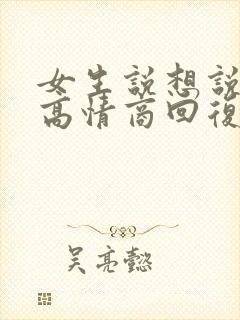 女生說想說
高情商回復
吳亮懿